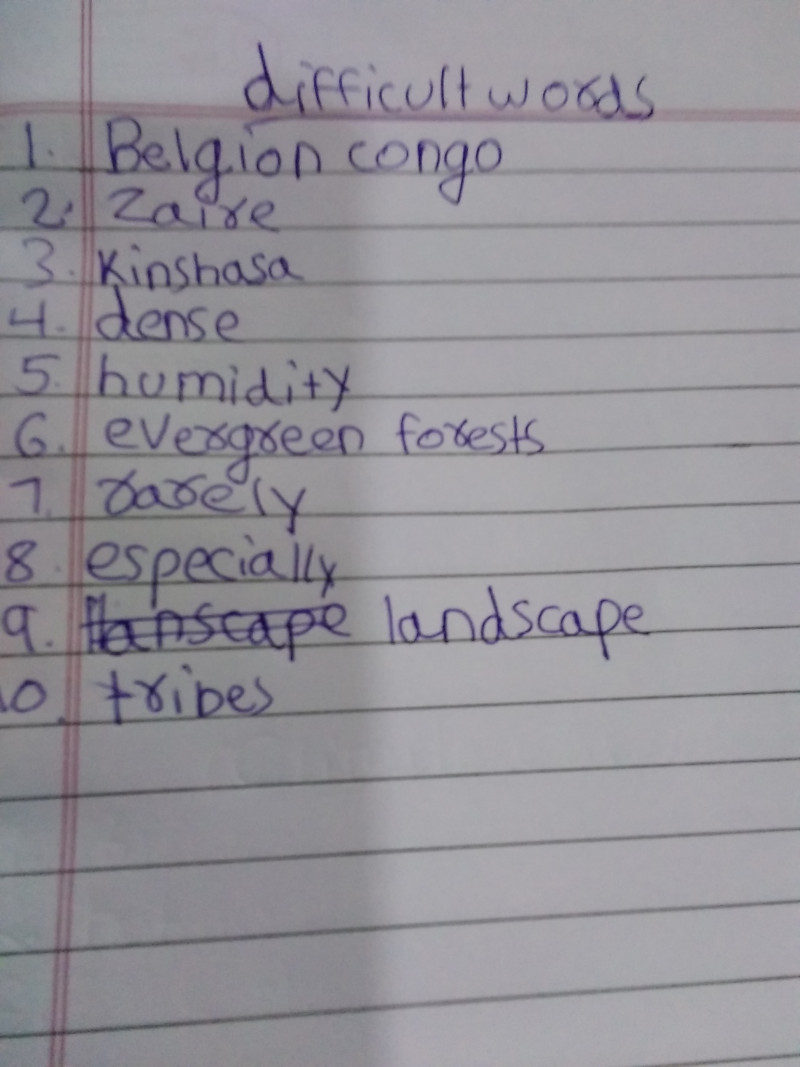 difficult words
1. Belgion congo
2. Zaire
3. Kinshasa
4. dense
5. humidity
6. evergreen forests
7. rarely
8. especially
9. landscape
10. tribes